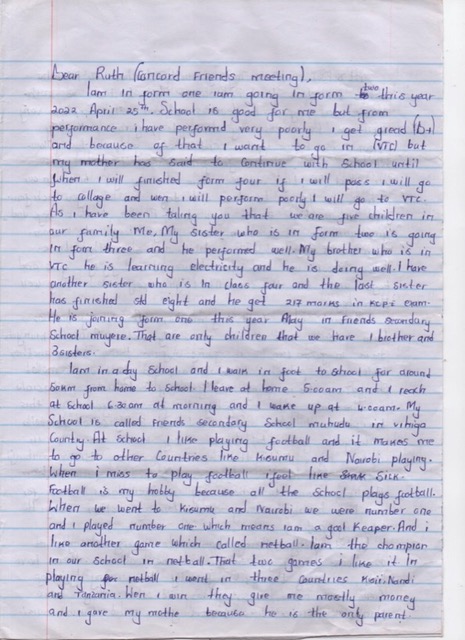 Dear Ruth (Concord Friends meeting),
Iam in form one iam going in form two this year
2022 April 25th. School is good for me but from
performance i have performed very poorly I get
and because of that I want to go in (VTC) but
my mother has said to continue with School until
when I will finished form four if I will pass I will go
to collage and wen I will perform poorly I will go to VTC.
As I have been taling you that we are five children in
our family Me, My sister who is in form two is going
in form three and he performed well. My brother who is in
VTC he is learning electricity and he is doing well. I have
another sister who is in class four and the last sister
has finished std eight and he get 217 marks in exam.
He is joining form one this year May in Friends secondary
School muyere. That are only children that we have 1 brother and
3 sisters.
Iam in a day School and I walk in foot to School for around
50km from home to School. I leave at home 5:00am and I reach
at School 6:30am at morning and I wake up at 4:00am. My
School is called Friends secondary School muhudu in vihiga
County. At School I like playing football and it makes me
to go to other Countries like Kisumu and Nairobi playing.
When i miss to play football i feel like Sick.
Football is my hobby because all the School plays football.
When we went to Kisumu and Nairobi we were number one
and i played number one which means iam a goal Keaper. And i
like another game which called netball. Iam the champion
in our School in netball. That two games i like it. In
playing netball I went in three Countries Kisii, Nandi
and Tanzania. Wen I win they give me mostly money
and I gave my mothe because he is the only parent